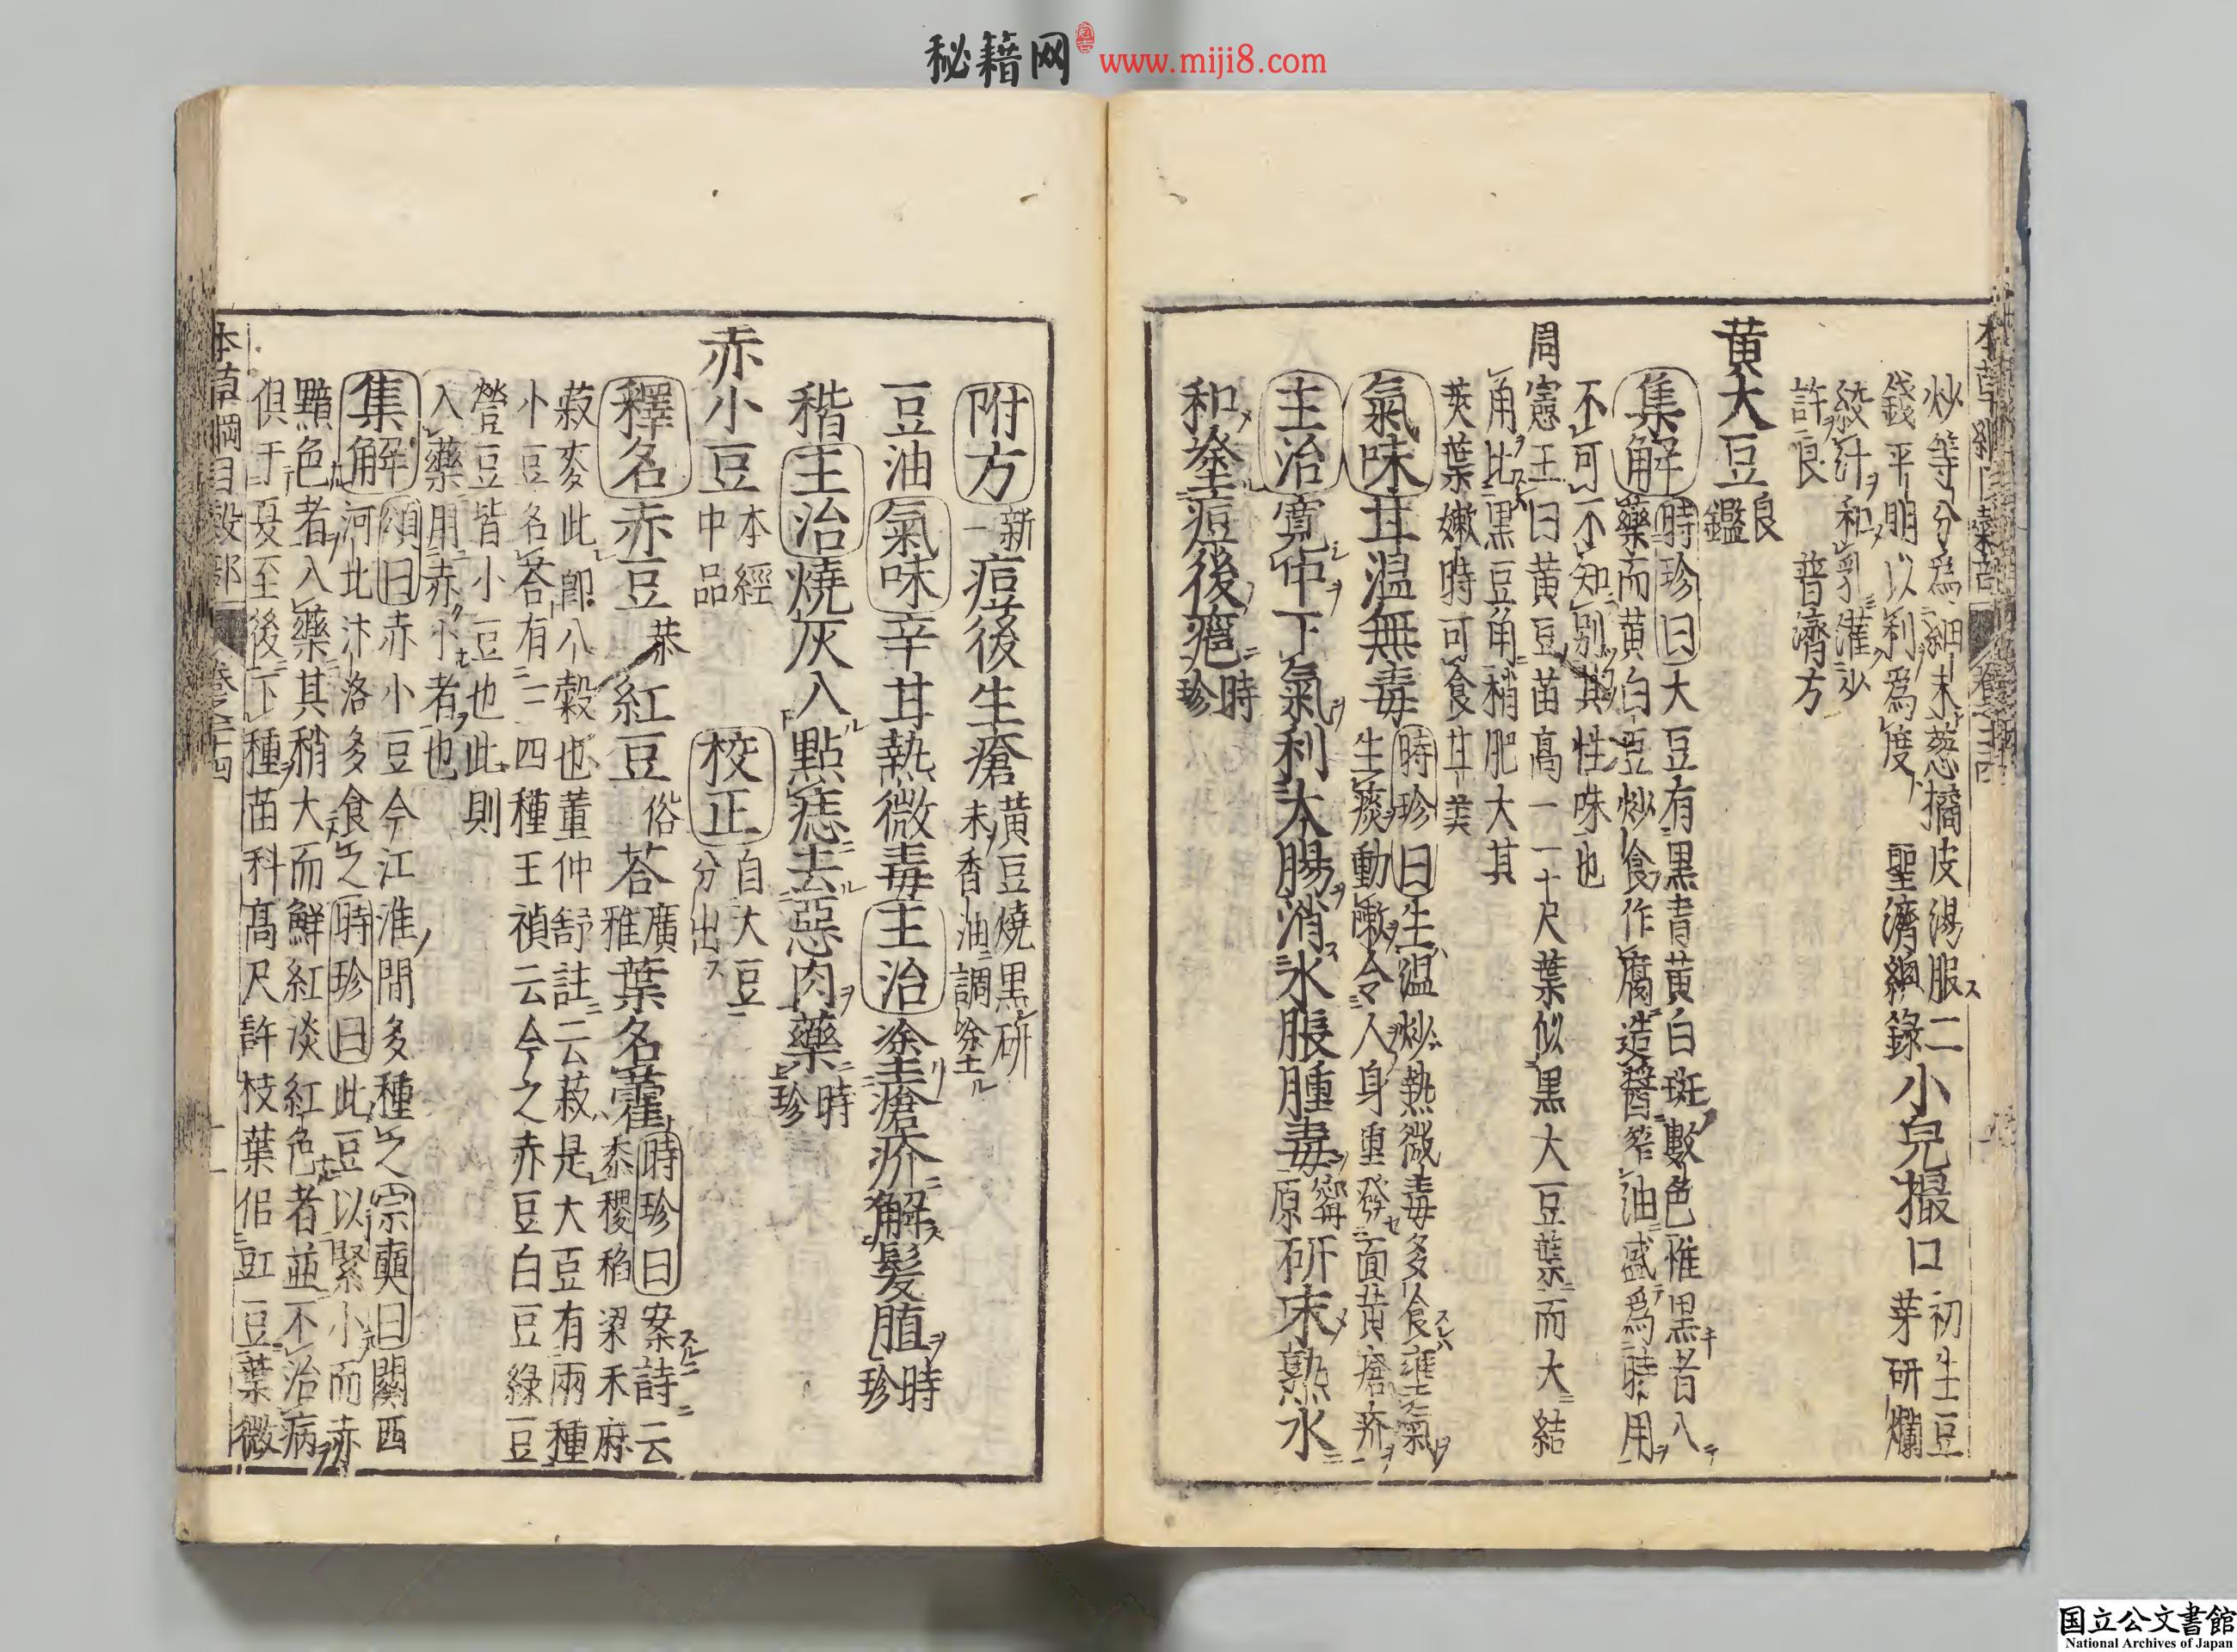 秘籍网 www.miji8.com
炒等分爲細末葱橘皮湯服二
錢平明以利爲度 聖濟總錄
小兒撮口
初生豆
芽研爛
絞汁和乳灌少
許良 普濟方
黃大豆
食鑑
集解
時珍曰大豆有黒青黃白斑數色惟黒者入
藥而黃白豆炒食作腐造醬笮油盛爲時用
不可不知別其性味也
周憲王曰黃豆苗高一二尺葉似黒大豆葉而大結
角比黒豆角稍肥大其
莢葉嫩時可食甘美
氣味甘温無毒
時珍曰生温炒熱微毒多食壅氣
生痰動嗽令人身重發面黃瘡疥
主治寛中下氣利大腸消水脹腫毒
寗原
研末熟水
和塗痘後癰
時珍
附方
新一
痘後生瘡
黃豆燒黒研
末香油調塗
豆油氣味辛甘熱微毒主治塗瘡疥解髮䐈
時珍
稭主治燒灰入點痣去惡肉藥
時珍
赤小豆
本經
中品
校正
自大豆
分出
釋名赤豆
恭
紅豆
俗
荅
廣雅
葉名藿
時珍曰案詩云
黍稷稻粱禾麻
菽麥此即八穀也董仲舒註云菽是大豆有兩種
小豆名荅有三四種王禎云今之赤豆白豆綠豆
䝁豆皆小豆也此則
入藥用赤小者也
集解
頌曰赤小豆今江淮間多種之宗奭曰關西
河北汴洛多食之時珍曰此豆以緊小而赤
黯色者入藥其稍大而鮮紅淡紅色者並不治病
俱于夏至後下種苗科高尺許枝葉似豇豆葉微
本草綱目穀部 卷之二十四 十一
国立公文書館
National Archives of Japan